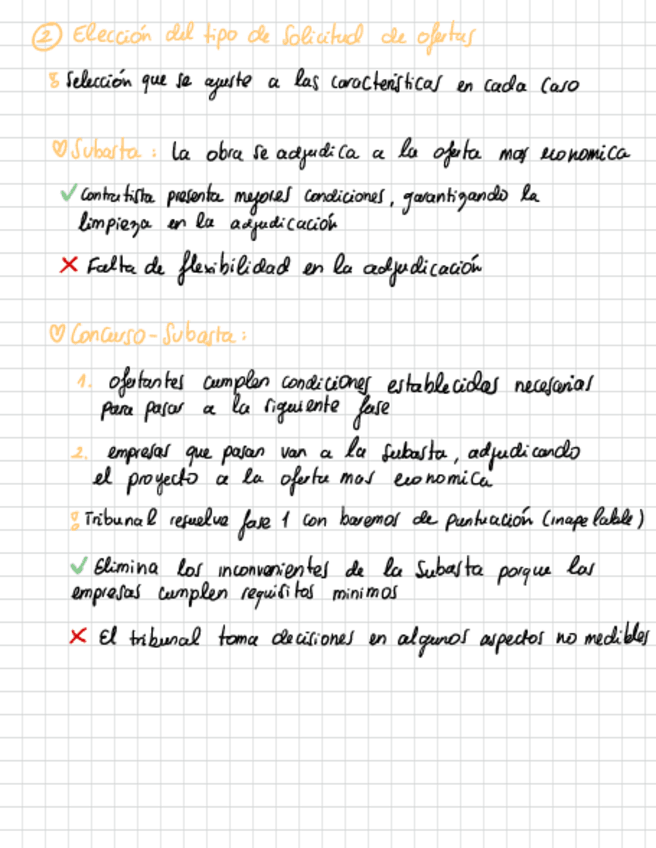 ② Elección del tipo de Solicitud de ofertas
Selección que se ajuste a las características en cada caso
♡ Subasta: La obra se adjudica a la oferta mas economica
✓ Contratista presenta mejores condiciones, garantizando la
limpieza en la adjudicación
✗ Falta de flexibilidad en la adjudicación
♡ Concurso-Subasta:
1. ofertantes cumplen condiciones establecidas necesarias
para pasar a la siguiente fase
2. empresas que pasan van a la subasta, adjudicando
el proyecto a la oferta mas economica
Tribunal resuelve fase 1 con baremos de puntuación (inapelable)
✓ Elimina los inconvenientes de la Subasta porque las
empresas cumplen requisitos minimos
✗ El tribunal toma decisiones en algunos aspectos no medibles